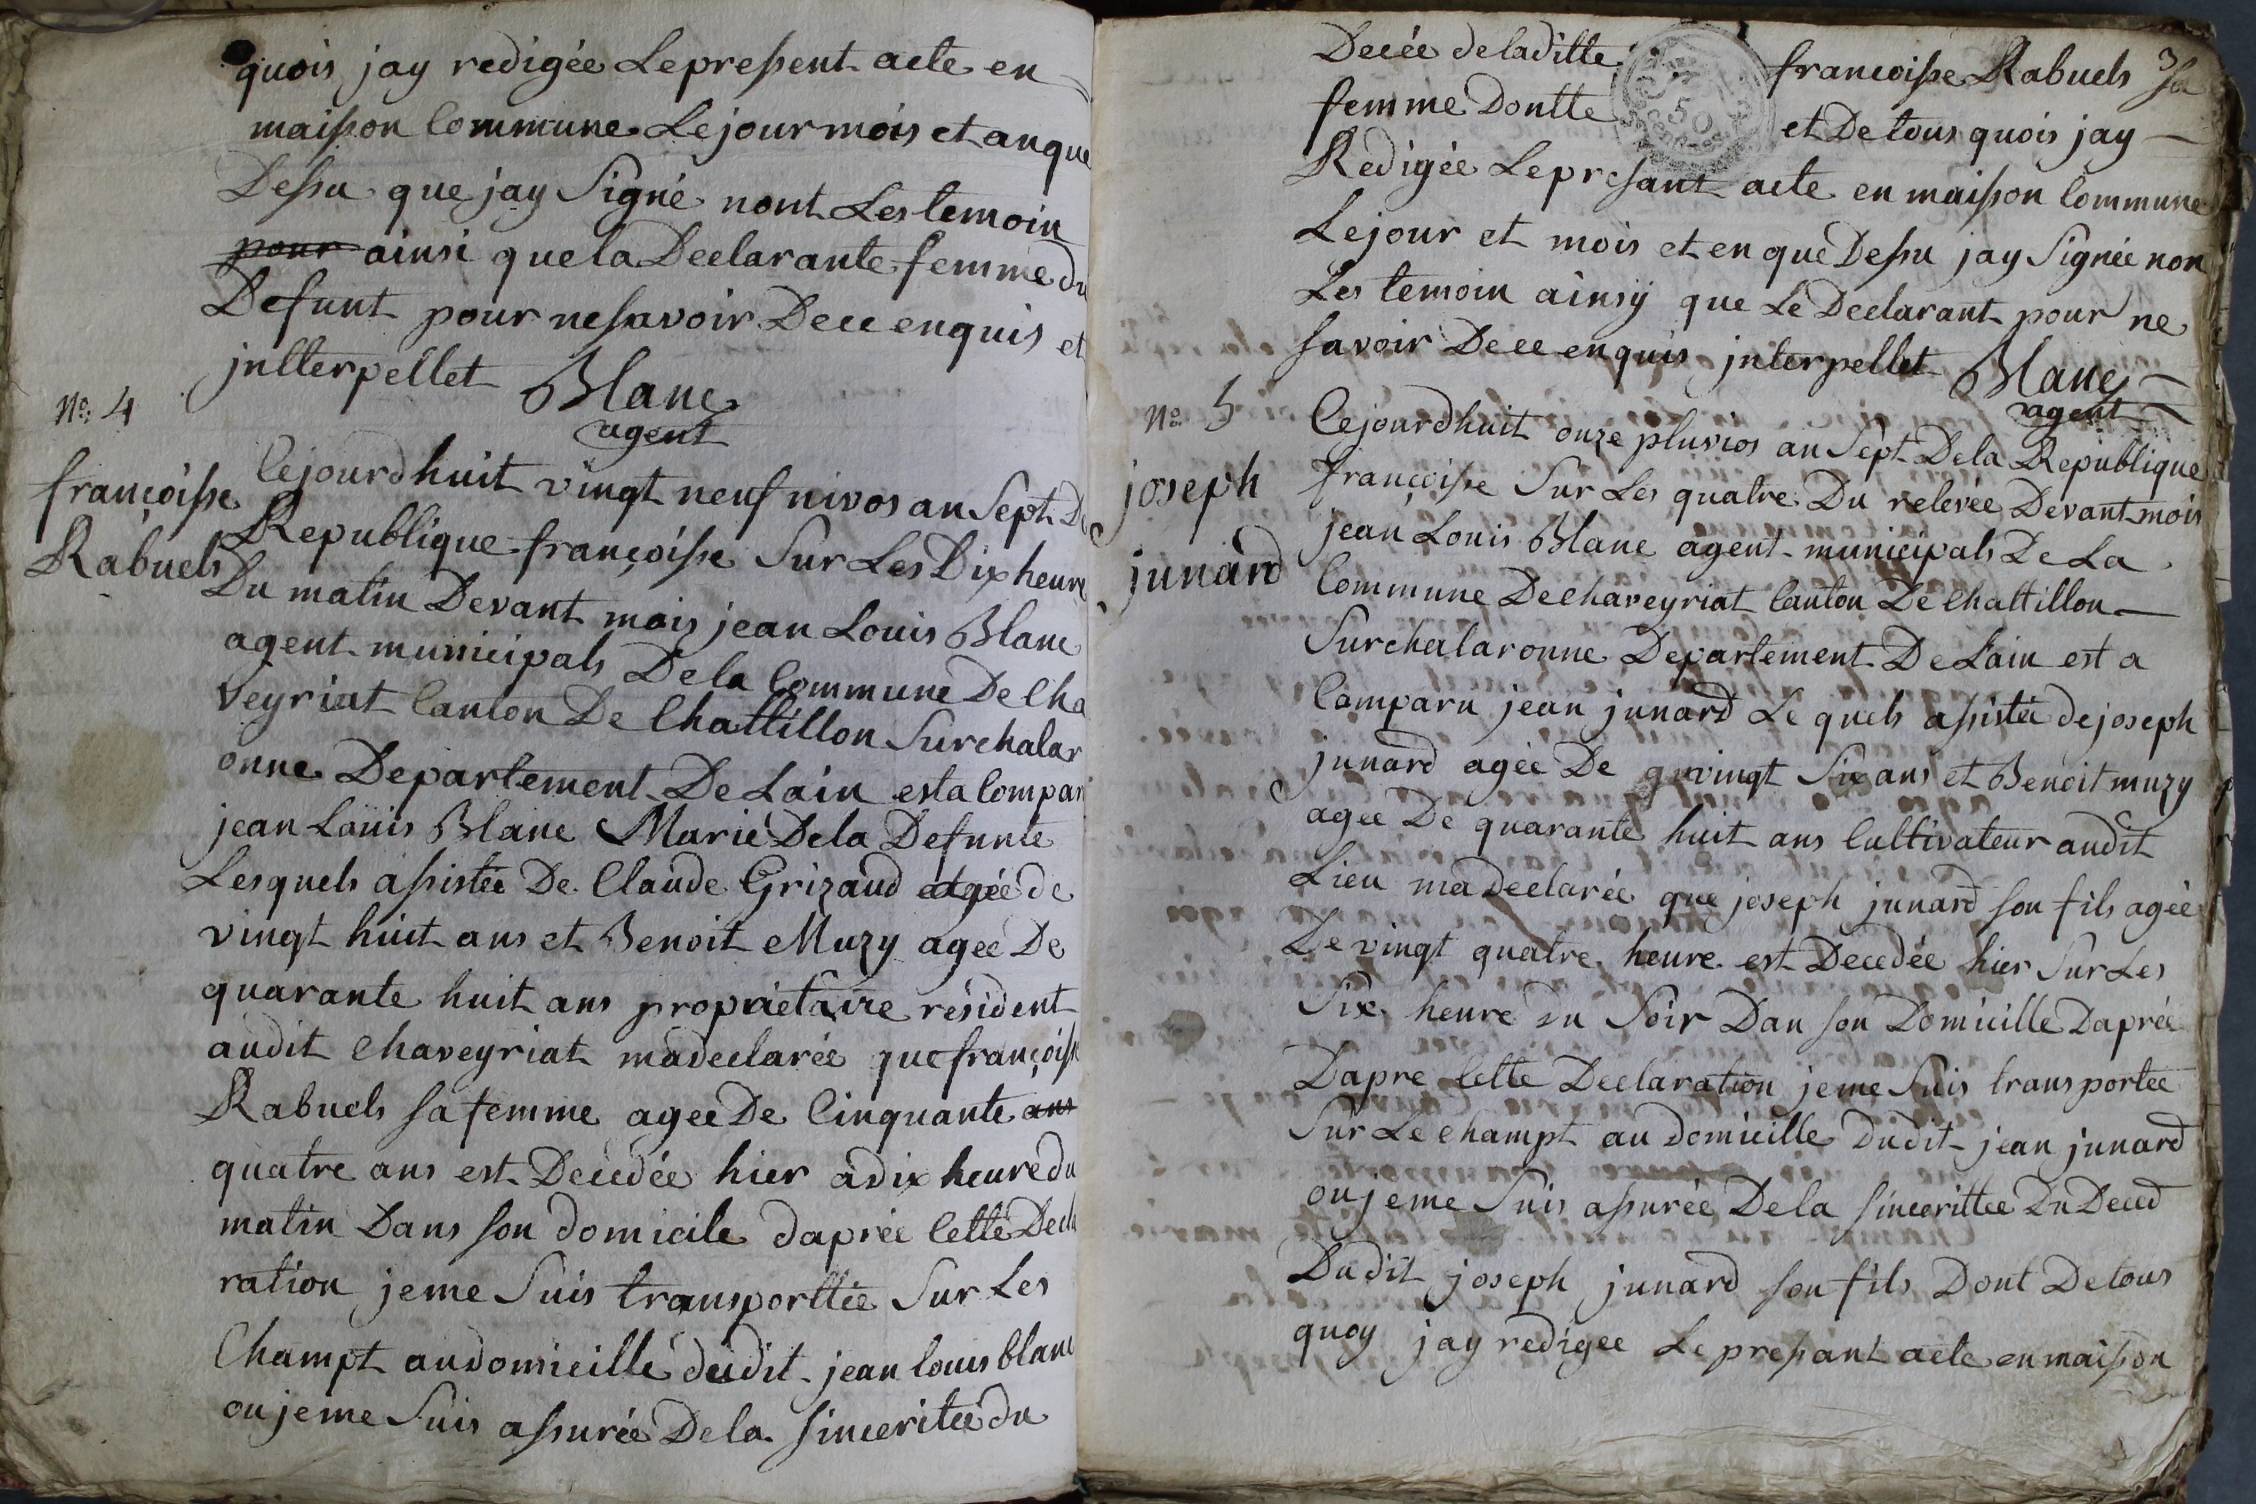 quois jay redigée Lepresent acte en
maison Commune Lejour mois et an que
Dessu que jay Signé nont Les temoin
pour ainsi que la Declarante femme du
Defunt pour ne savoir Dece enquis et
jntterpellet Blanc
agent
No. 4
françoise
Rabuels
Cejourdhuit vingt neuf nivos an Sept De
Republique françoise Sur Les Dix heure
Du matin Devant mois jean Louis Blanc
agent municipals De la Commune De Cha
veyriat Canton De Chattillon Surchalar
onne Departement De Lain est a Compar
jean Louis Blanc Marié De la Defunte
Lesquels assistée De Claude Grizaud agée de
vingt huit ans et Benoit Muzy agee De
quarante huit ans proprietaire résident
audit Chaveyriat madeclarée que françoise
Rabuels sa femme agee De Cinquante ans
quatre ans est Decedée hier a dix heure du
matin Dans son domicile daprée Cette Decla
ration jeme Suis transporttée Sur Les
Champt au domicille dudit jean louis blanc
ou jeme Suis assurée De la sinceritée du
3
Decée de laditte françoise Rabuels sa
femme Dontte et De tous quois jay
50
Redigée Lepresant acte en maison Commune
Lejour et mois et en que Dessu jay Signée non
Les temoin ainsy que Le Declarant pour ne
savoir Dece enquis jnterpellet Blanc
agent
No. 5
joseph
junard
Cejourdhuit onze pluvios an Sept De la Republique
françoise Sur Les quatre Du relevée Devant mois
jean Louis Blanc agent municipals De La
Commune De Chaveyriat Canton De Chattillon
Surchalaronne Departement De Lain est a
Comparu jean junard Le quels assistée de joseph
junard agée De quvingt Six ans et Benoit muzy
agee De quarante huit ans Cultivateur audit
Lieu ma declarée que joseph junard son fils agée
De vingt quatre heure est Decedée hier Sur Les
Six heure du Soir Dan son Domicille Daprée
Dapre Cette Declaration jeme Suis transportee
Sur Le champt au domicille dudit jean junard
ou jeme Suis assurée De la sincerittee Du Deced
Dudit joseph junard son fils Dont De tous
quoy jay redigee Le presant acte en maison